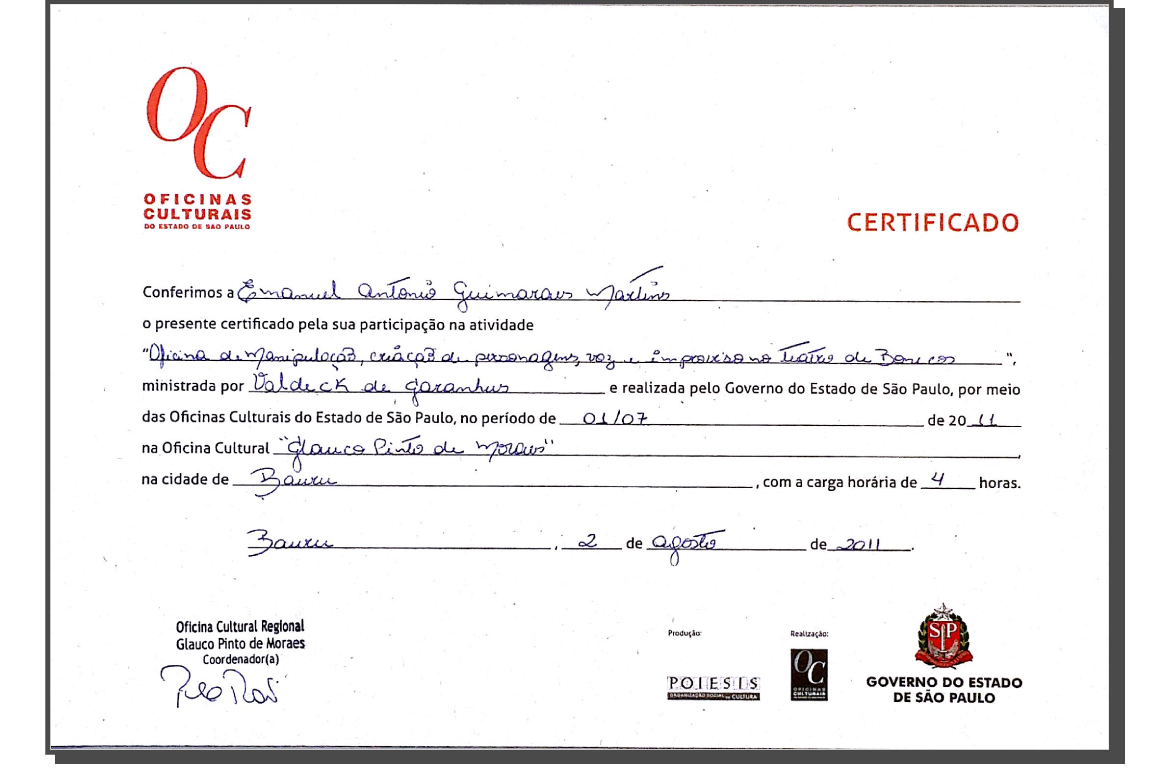 OC
OFICINAS
CULTURAIS
DO ESTADO DE SÃO PAULO
CERTIFICADO
Conferimos a Emanuel Antonio Guimaraes Martins
o presente certificado pela sua participação na atividade
"Oficina de Manipulação, criação de personagens, voz e improviso no Teatro de Bonecos",
ministrada por Valdeck de Garanhus e realizada pelo Governo do Estado de São Paulo, por meio
das Oficinas Culturais do Estado de São Paulo, no período de 01/07 de 2011
na Oficina Cultural "Glauco Pinto de Moraes",
na cidade de Bauru, com a carga horária de 4 horas.
Bauru, 2 de agosto de 2011.
Oficina Cultural Regional
Glauco Pinto de Moraes
Coordenador(a)
Produção:
POIESIS
ORGANIZAÇÃO SOCIAL DE CULTURA
Realização:
OC
OFICINAS
CULTURAIS
SP
GOVERNO DO ESTADO
DE SÃO PAULO